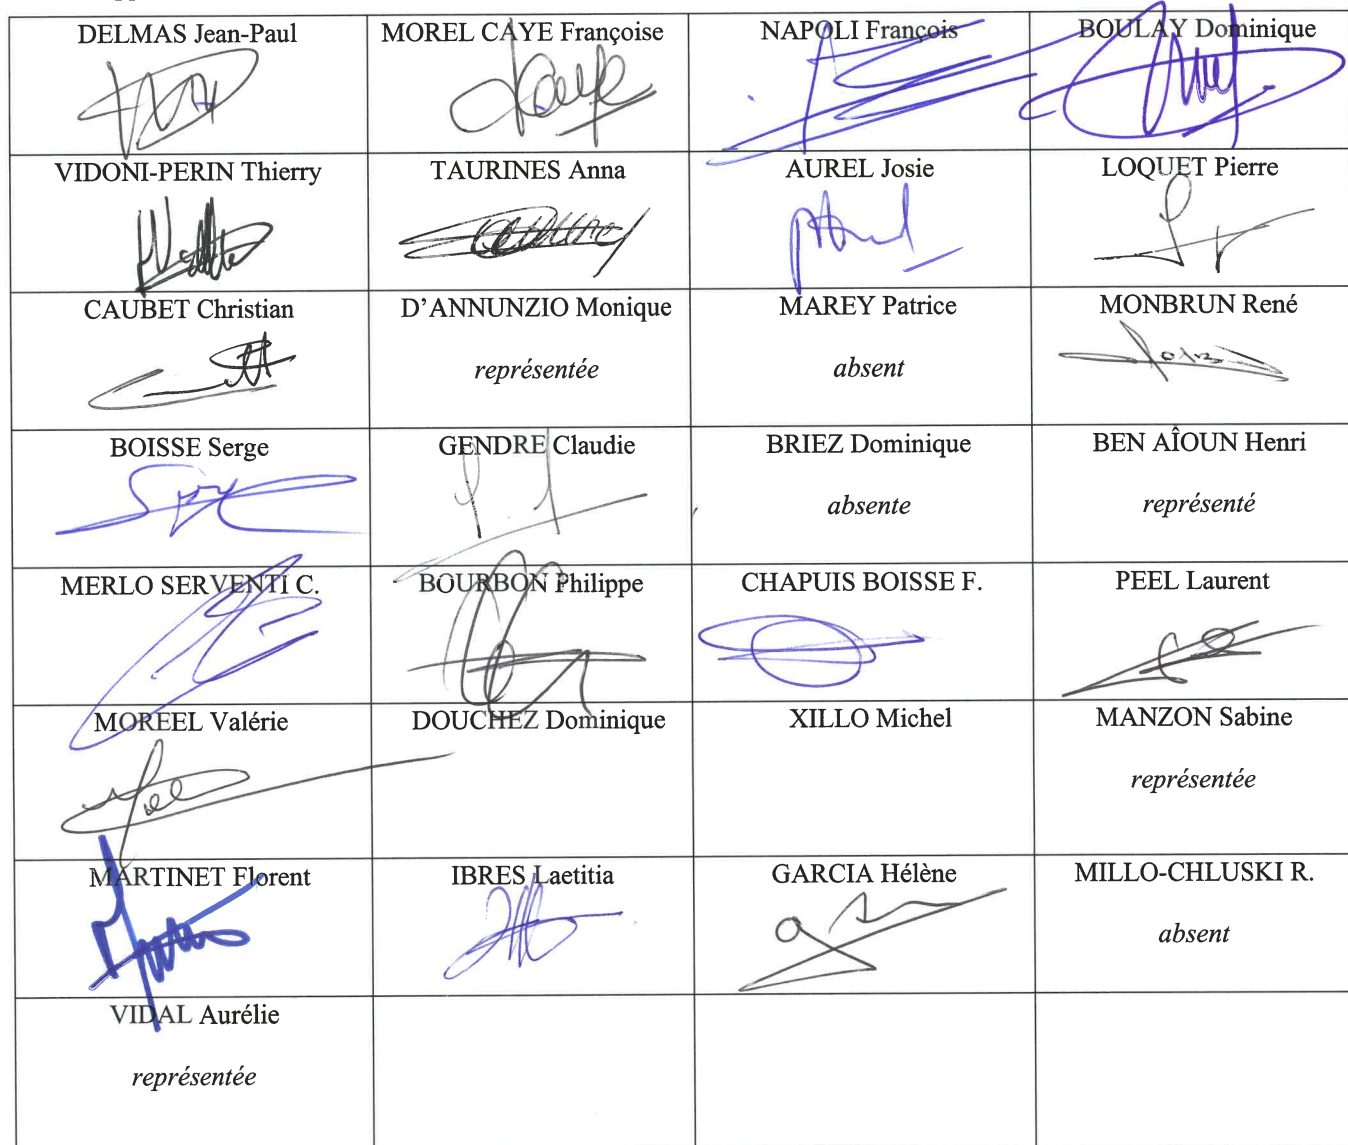 DELMAS Jean-Paul
MOREL CAYE Françoise
NAPOLI François
BOULAY Dominique
VIDONI-PERIN Thierry
TAURINES Anna
AUREL Josie
LOQUET Pierre
CAUBET Christian
D'ANNUNZIO Monique
représentée
MAREY Patrice
absent
MONBRUN René
BOISSE Serge
GENDRE Claudie
BRIEZ Dominique
absente
BEN AÎOUN Henri
représenté
MERLO SERVENTI C.
BOURBON Philippe
CHAPUIS BOISSE F.
PEEL Laurent
MOREEL Valérie
DOUCHEZ Dominique
XILLO Michel
MANZON Sabine
représentée
MARTINET Florent
IBRES Laetitia
GARCIA Hélène
MILLO-CHLUSKI R.
absent
VIDAL Aurélie
représentée